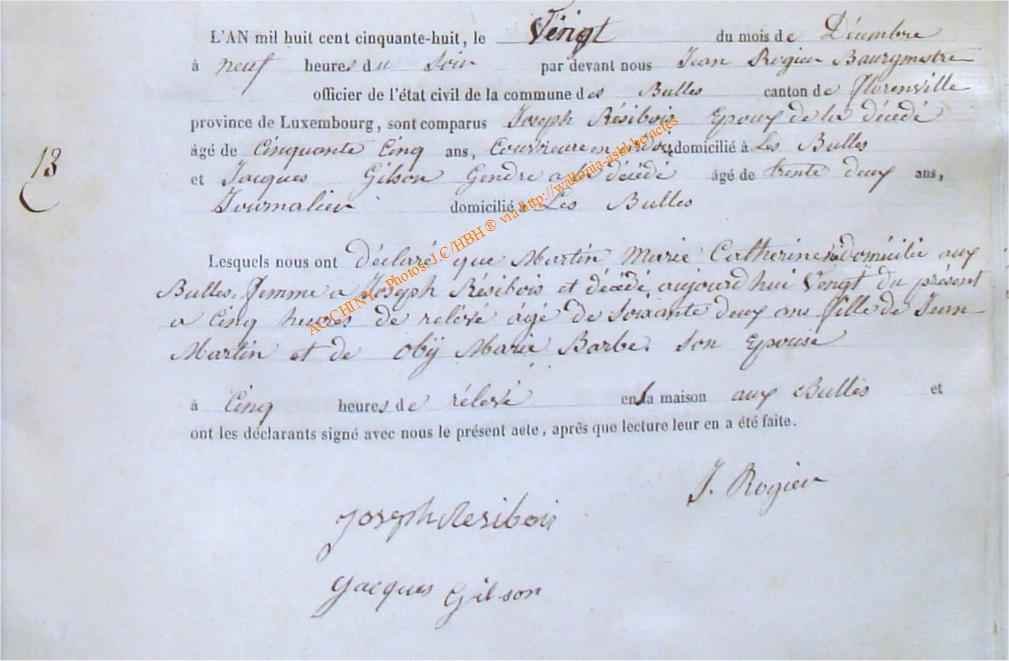 L'AN mil huit cent cinquante-huit, le Vengt du mois de Décembre
à neuf heures du Soir par devant nous Jean Rogier Baurgmstre
officier de l'état civil de la commune des Bulles canton de florenville
province de Luxembourg, sont comparus Joseph Résibois Epoux de la décédé
âgé de Cinquante Cinq ans, domicilié à Les Bulles
et Jacques Gilson Gendre a la décédé âgé de trente deux ans,
Journalier domicilié à Les Bulles
13
Lesquels nous ont déclaré que Martin Marie Catherine domicilie aux
Bulles, femme a Joseph Résibois et décédé aujourdhui Vengt du présent
a Cinq heures de relévé agé de Soixante deux ans fille de Jean
Martin et de Obij Marie Barbe. Son Epouse
à Cinq heures de rélevé en la maison aux Bulles et
ont les déclarants signé avec nous le présent acte, après que lecture leur en a été faite.
J. Rogier
Joseph Resibois
Jacques Gilson
ACCHINY - Photos: LC/HBH ® via http://wallonia-asbl.be/actes